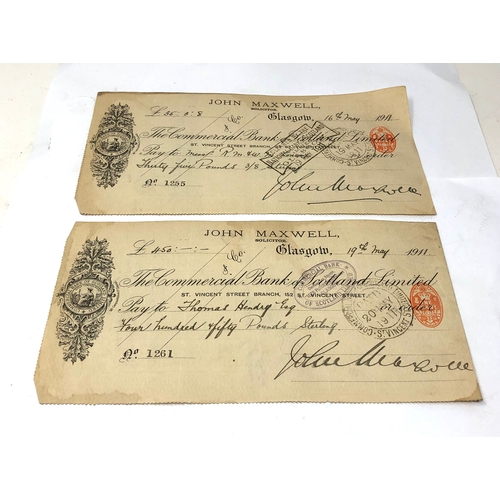 JOHN MAXWELL,
SOLICITOR.
& Co.
Glasgow, 16th May 1911
The Commercial Bank of Scotland Limited
ST. VINCENT STREET BRANCH,
Pay to Messrs R. M.
Thirty Five Pounds 0/8
John Maxwell
No 1255
JOHN MAXWELL,
SOLICITOR.
£ 450 : - : -
& Co.
Glasgow, 19th May 1911
The Commercial Bank of Scotland Limited
ST. VINCENT STREET BRANCH, 152 ST. VINCENT STREET.
Pay to Thomas Hendry Esq or Order
Four hundred & fifty Pounds Sterling
John Maxwell
No 1261
COMMERCIAL BANK
OF SCOTLAND
20 MY
1911